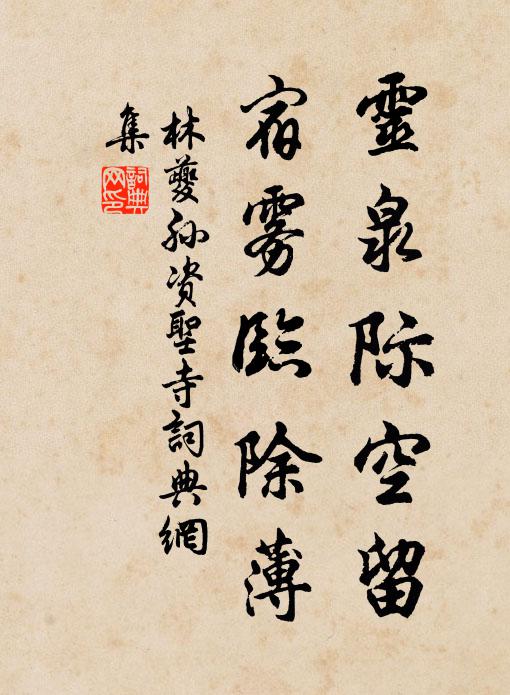 靈泉际空留
宿雾臨除薄
林夔孙资聖寺詞典網
集
詞典网印